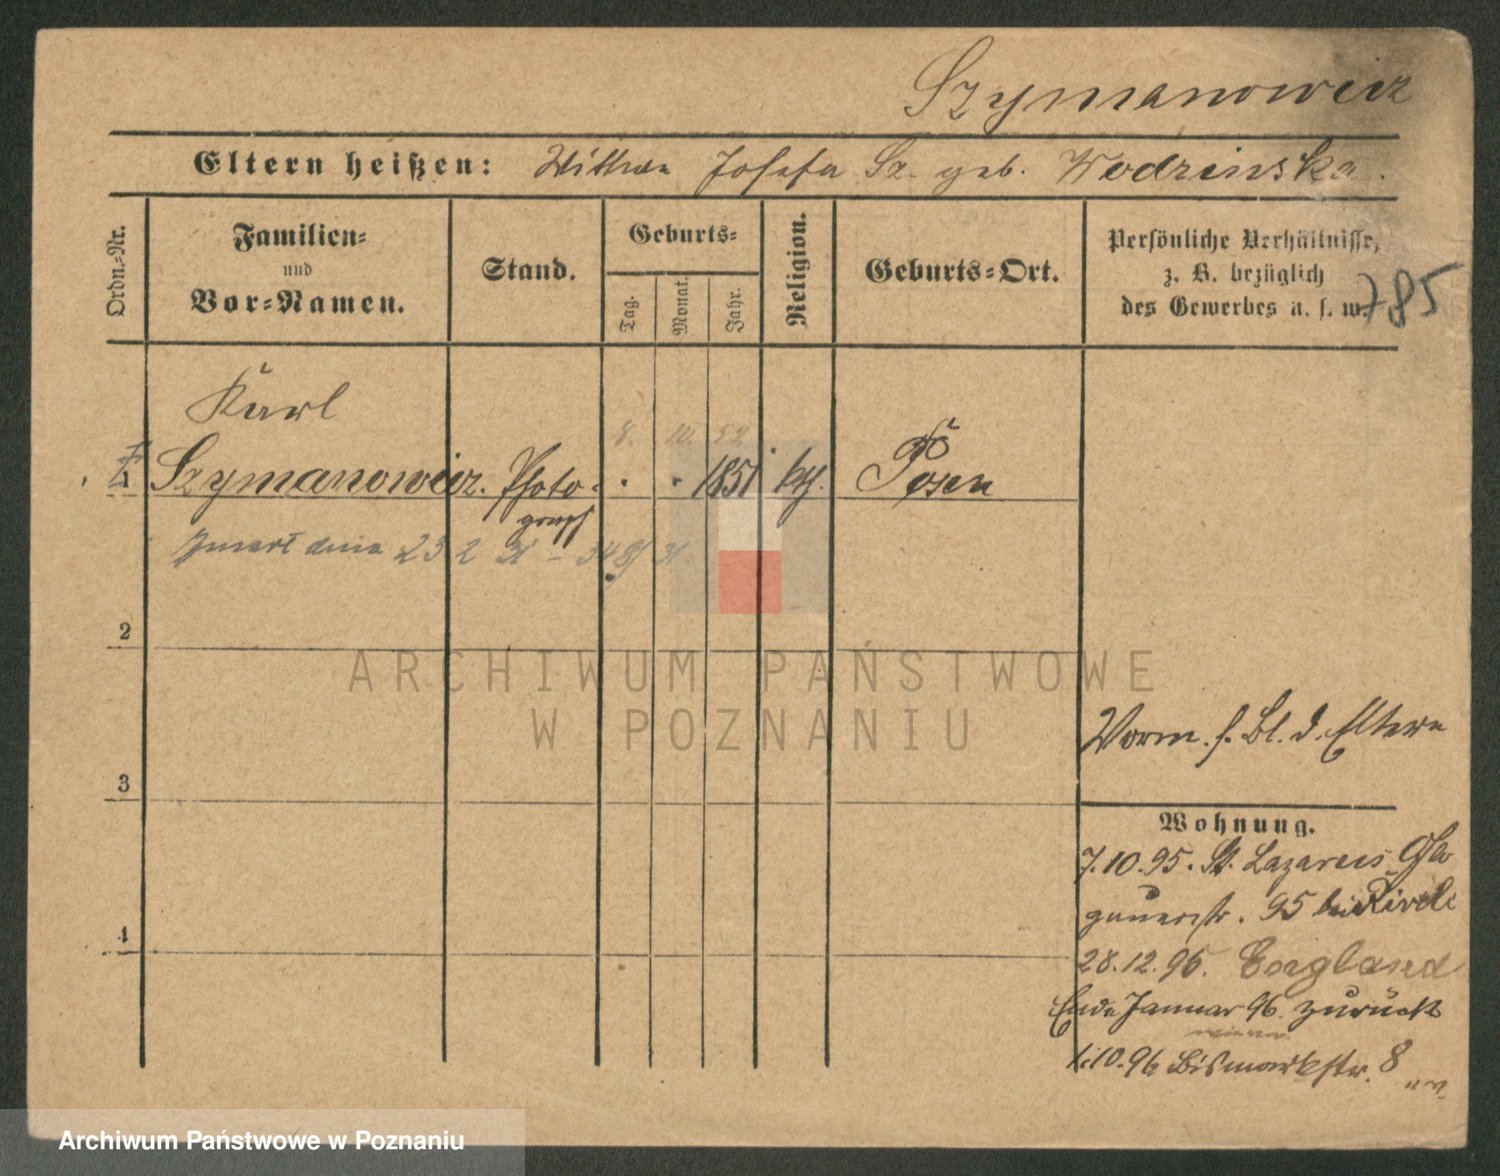 Szymanowicz
Eltern heißen: Wittwe Josefa Sz. geb. Wodzinska.
Ordn.-Nr.
Familien-
und
Vor-Namen.
Stand.
Geburts-
Tag.
Monat.
Jahr.
Religion.
Geburts-Ort.
Persönliche Verhältnisse,
z. B. bezüglich
des Gewerbes u. s. w.
785
Karl
8. 10. 52
1 Szymanowicz. Photo- 1851 kth. Posen
graph
Zmarł dnia 23 2 31 - 31.
2
3
4
Vorm. s. Bl. d. Eltern
Wohnung.
7.10.95. St. Lazarus Glo
gauerstr. 95 bei
28.12.95. England
Ende Januar 96. zurück
1.10.96 Bismarkstr. 8
ARCHIWUM PAŃSTWOWE
W POZNANIU
Archiwum Państwowe w Poznaniu